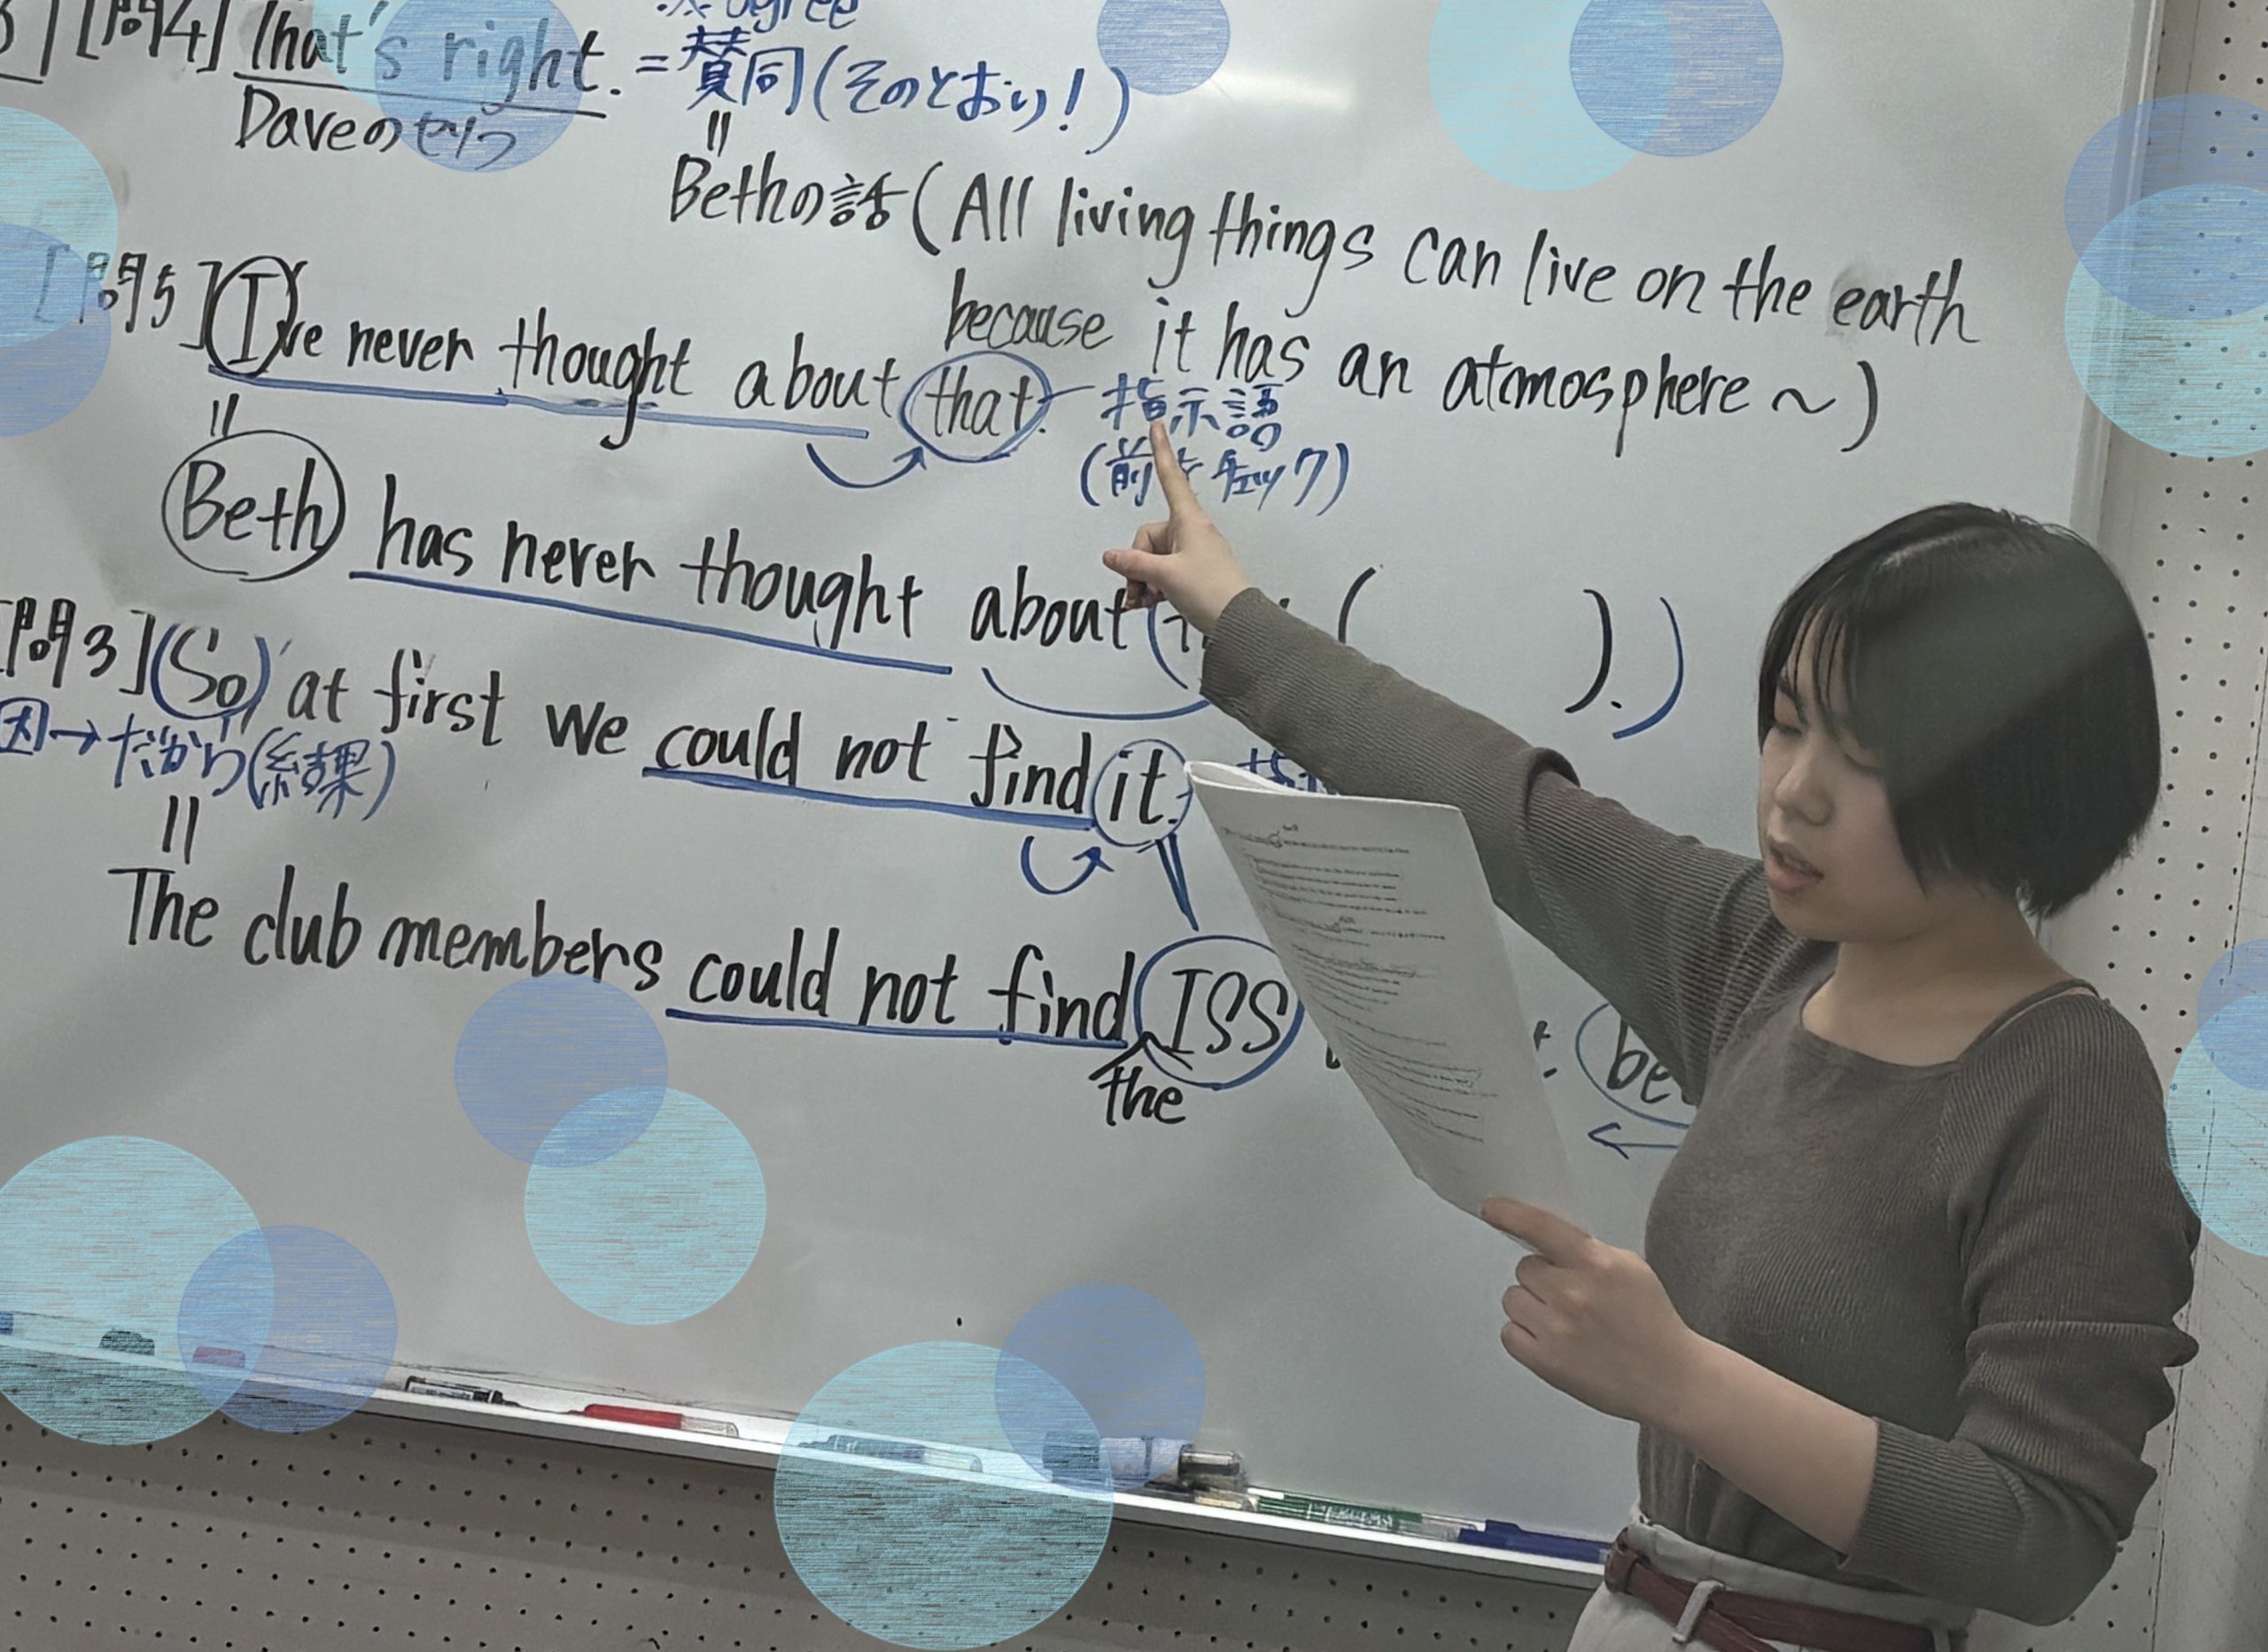 [問4] That's right. = 賛同(そのとおり!)
Daveのセリフ
Bethの話(All living things can live on the earth
because it has an atmosphere～)
[問5] I've never thought about that. 指示語
(前をチェック)
Beth has never thought about ( ).)
[問3](So) at first we could not find it.
因→だから(結果)
The club members could not find ISS
the